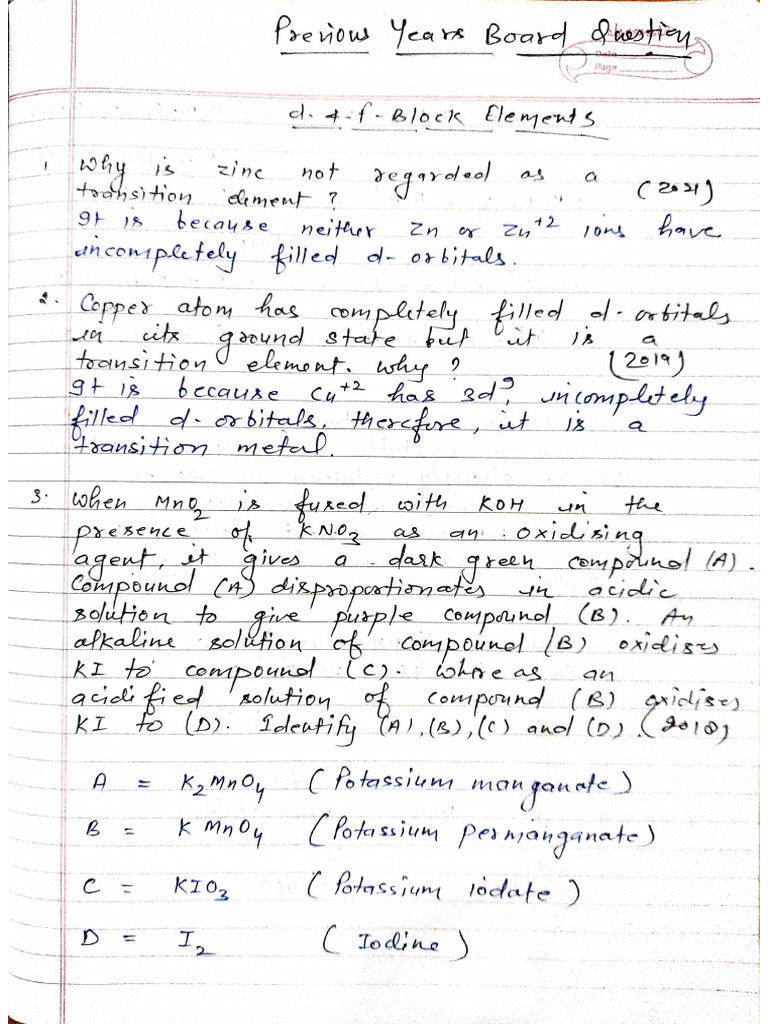 Previous Years Board Question
Date
Page
d. & f- Block Elements
1 Why is zinc not regarded as a
transition element ? (2021)
It is because neither Zn or Zn+2 ions have
incompletely filled d- orbitals.
2. Copper atom has completely filled d- orbitals
in its ground state but it is a
transition element. why ? (2019)
It is because Cu+2 has 3d9, incompletely
filled d- orbitals, therefore, it is a
transition metal.
3. When MnO2 is fused with KOH in the
presence of KNO3 as an oxidising
agent, it gives a dark green compound (A).
Compound (A) disproportionates in acidic
solution to give purple compound (B). An
alkaline solution of compound (B) oxidises
KI to compound (C). where as an
acidified solution of compound (B) oxidises
KI to (D). Identify (A), (B), (C) and (D). (2018)
A = K2MnO4 (Potassium manganate)
B = KMnO4 (Potassium permanganate)
C = KIO3 (Potassium iodate)
D = I2 (Iodine)